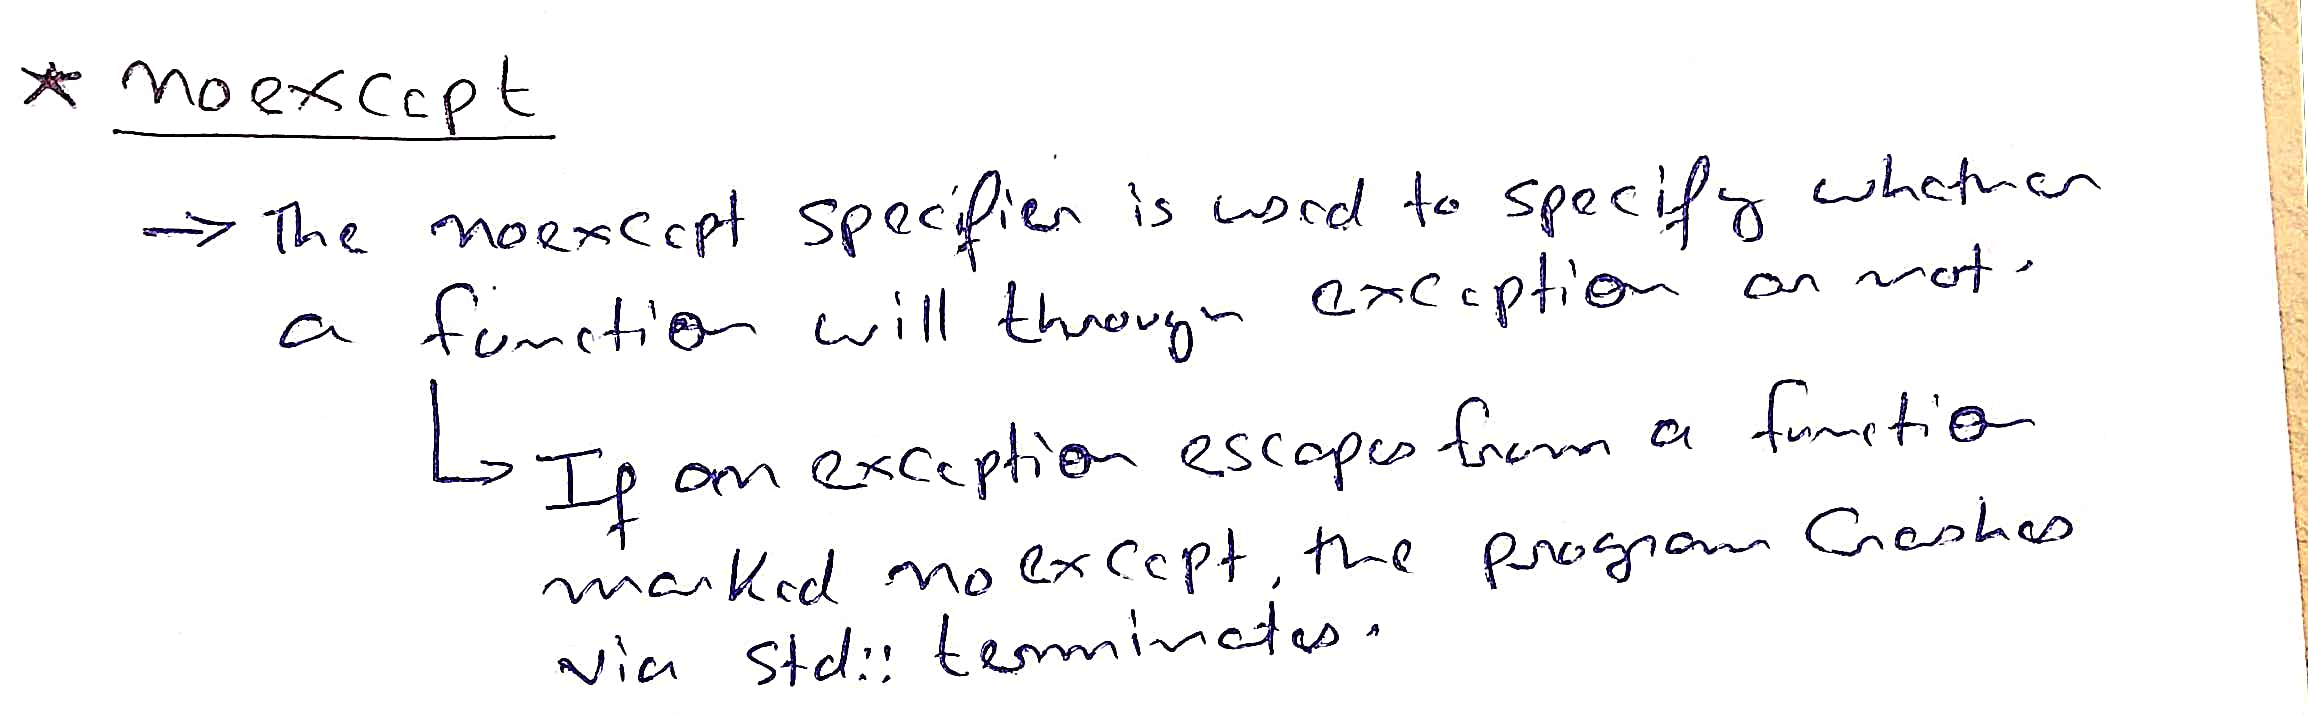 * noexcept
→ The noexcept specifier is used to specify whether
a function will through exception or not.
↳ If an exception escapes from a function
marked noexcept, the program crashes
via std::terminates.